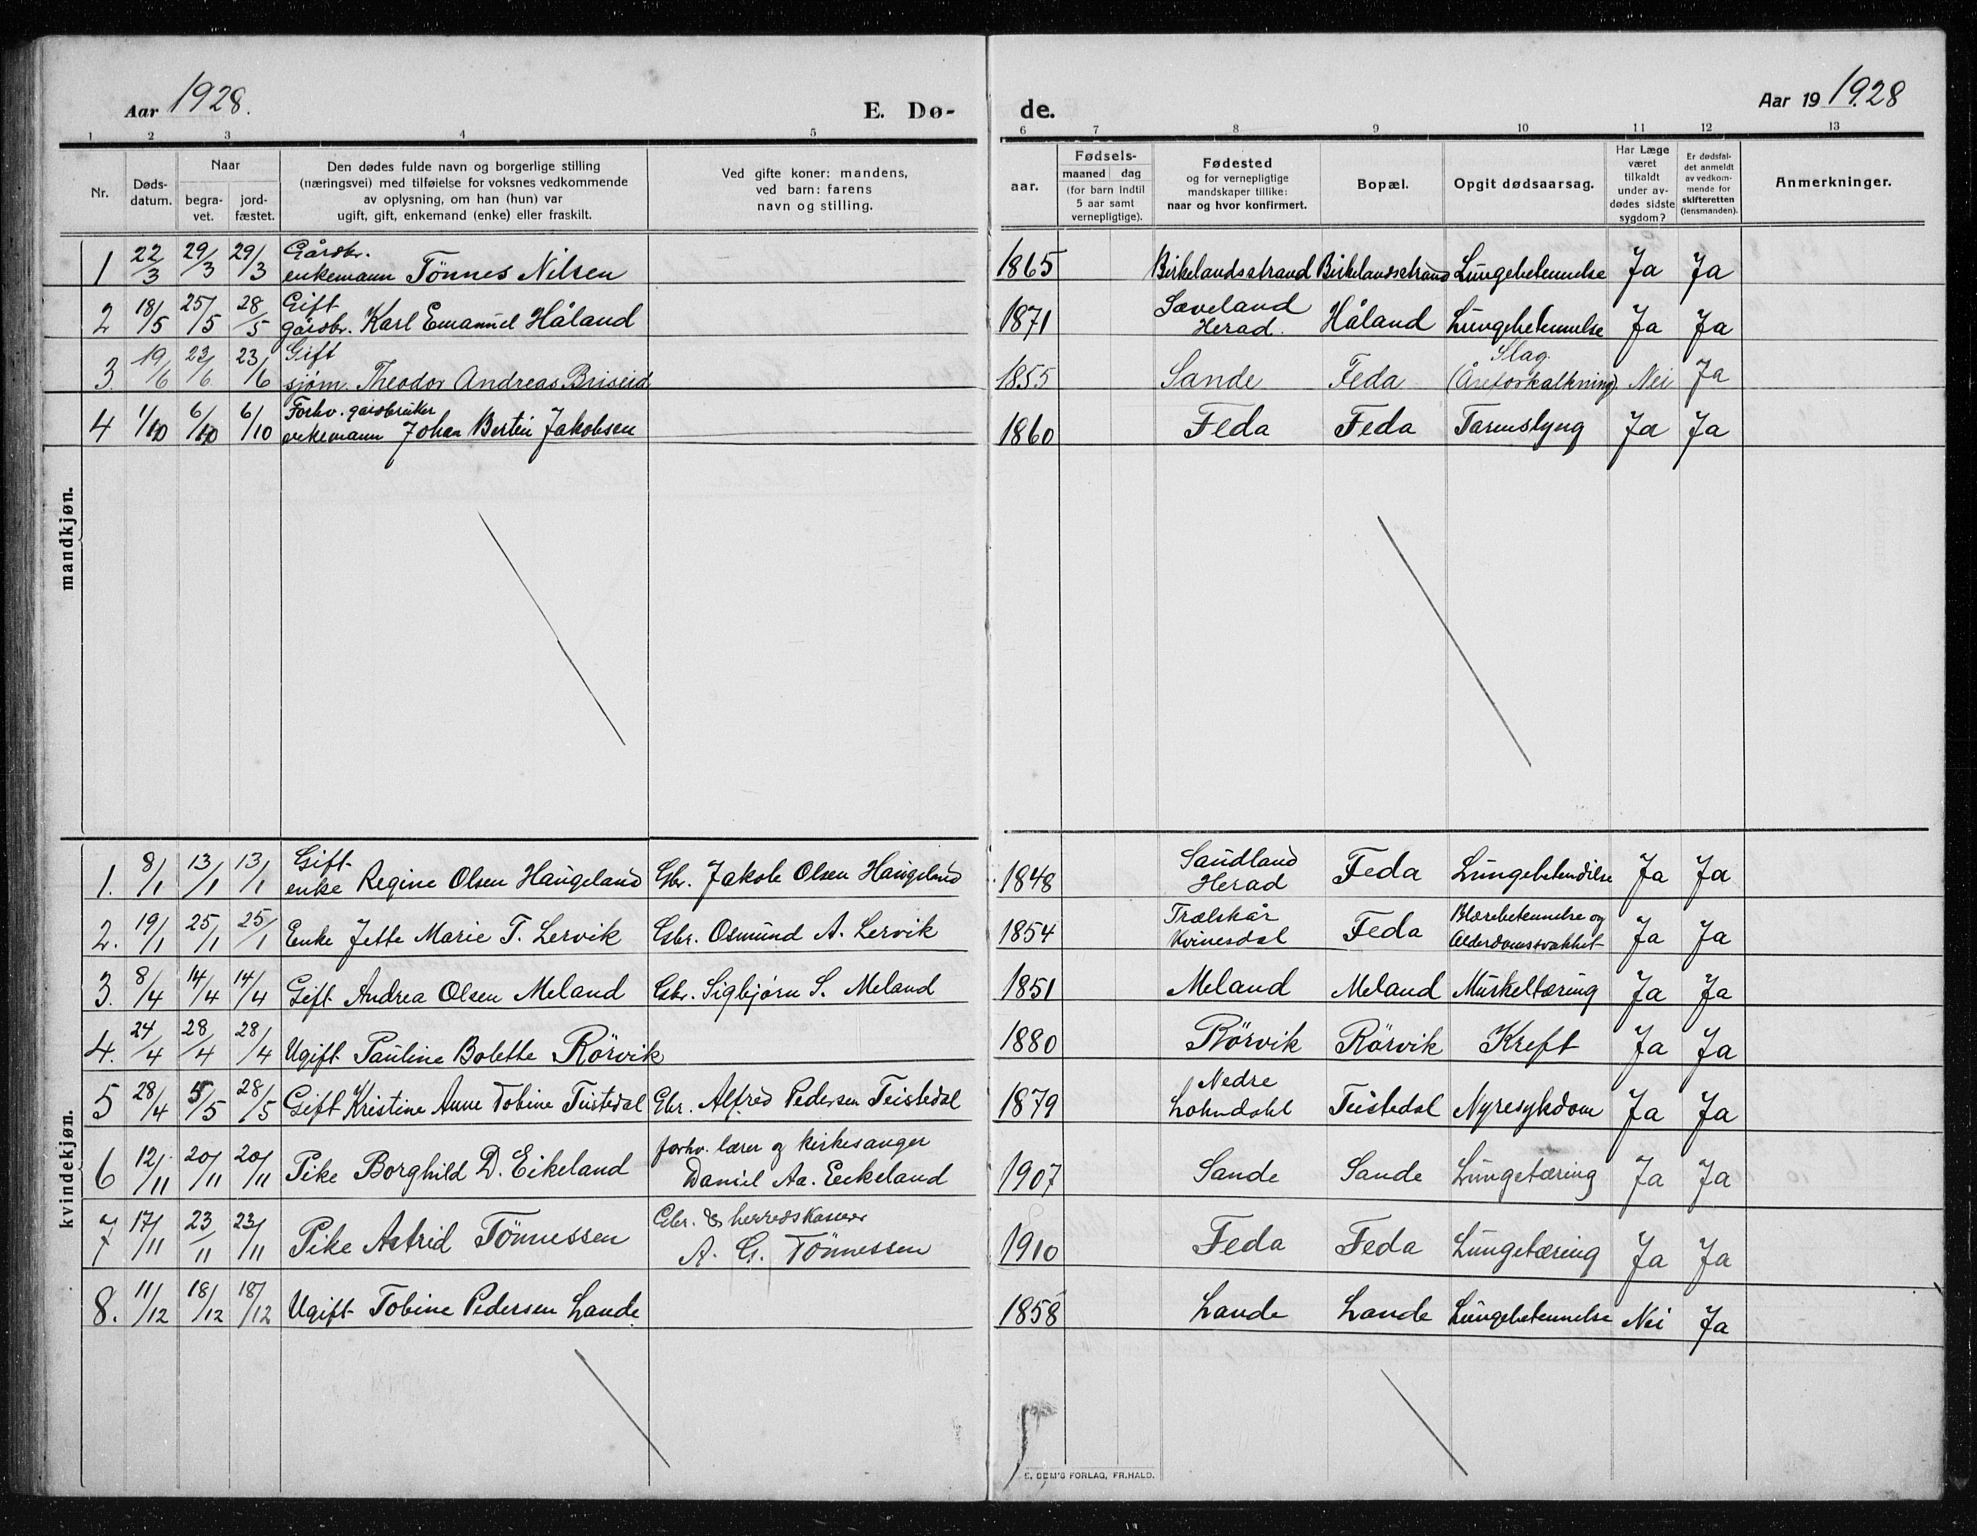 Aar 1928.
E. Dø-
1 2 3 4 5
Nr.
Døds-
datum.
Naar
begra-
vet.
jord-
fæstet.
Den dødes fulde navn og borgerlige stilling
(næringsvei) med tilføielse for voksnes vedkommende
av oplysning, om han (hun) var
ugift, gift, enkemand (enke) eller fraskilt.
Ved gifte koner: mandens,
ved barn: farens
navn og stilling.
mandkjøn.
Gårdbr.
1 22/3 29/3 29/3 enkemann Tönnes Nilsen
Gift
2 18/5 25/5 28/5 gårdbr. Karl Emanuel Håland
Gift
3. 19/6 23/6 23/6 sjøm. Theodor Andreas Briseid
Forhv. gårdbruker
4 1/10 6/10 6/10 enkemann Johan Bertin Jakobsen
kvindekjøn.
Gift
1. 8/1 13/1 13/1 enke Regine Olsen Haugeland Gbr. Jakob Olsen Haugeland
2. 19/1 25/1 25/1 Enke Jette Marie T. Lervik Gbr. Osmund A. Lervik
3. 8/4 14/4 14/4 Gift Andrea Olsen Meland Gbr. Sigbjørn S. Meland
4. 24/4 28/4 28/4 Ugift Pauline Bolette Rörvik
5 28/4 5/5 28/5 Gift Kristine Anne Tobine Teistedal Gbr. Alfred Pedersen Teistedal
forhv. lærer og kirkesanger
6 12/11 20/11 20/11 Pike Borghild D. Eikeland Daniel Aa. Eikeland
Gbr. & herredskasserer
7 17/11 23/11 23/11 Pike Astrid Tönnessen A. G. Tönnessen
8. 11/12 18/12 18/12 Ugift Tobine Pedersen Lande
de.
Aar 19 1928
6 7 8 9 10 11 12 13
aar.
Fødsels-
maaned dag
(for barn indtil
5 aar samt
vernepligtige).
Fødested
og for vernepligtige
mandskaper tillike:
naar og hvor konfirmert.
Bopæl.
Opgit dødsaarsag.
Har Læge
været
tilkaldt
under av-
dødes sidste
sygdom?
Er dødsfal-
det anmeldt
av vedkom-
mende for
skifteretten
(lensmanden).
Anmerkninger.
1865 Birkelandsstrand Birkelandsstrand Lungebetennelse Ja Ja
Sæveland
1871 Herad. Håland Lungebetennelse Ja Ja
Slag.
1855 Sande Feda (Åreforkalkning) Nei Ja
1860 Feda Feda Tarmslyng Ja Ja
Saudland
1848 Herad Feda Lungebetendelse Ja Ja
Trælskår Blærebetennelse og
1854 Kvinesdal Feda Alderdomssvakhet Ja Ja
1851 Meland Meland Muskeltæring Ja Ja
1880 Rörvik Rörvik Kreft Ja Ja
Nedre
1879 Lohndahl Teistedal Nyresykdom Ja Ja
1907 Sande Sande Lungetæring Ja Ja
1910 Feda Feda Lungetæring Ja Ja
1858 Lande Lande Lungebetennelse Nei Ja
E. SEM'S FORLAG, FR.HALD.